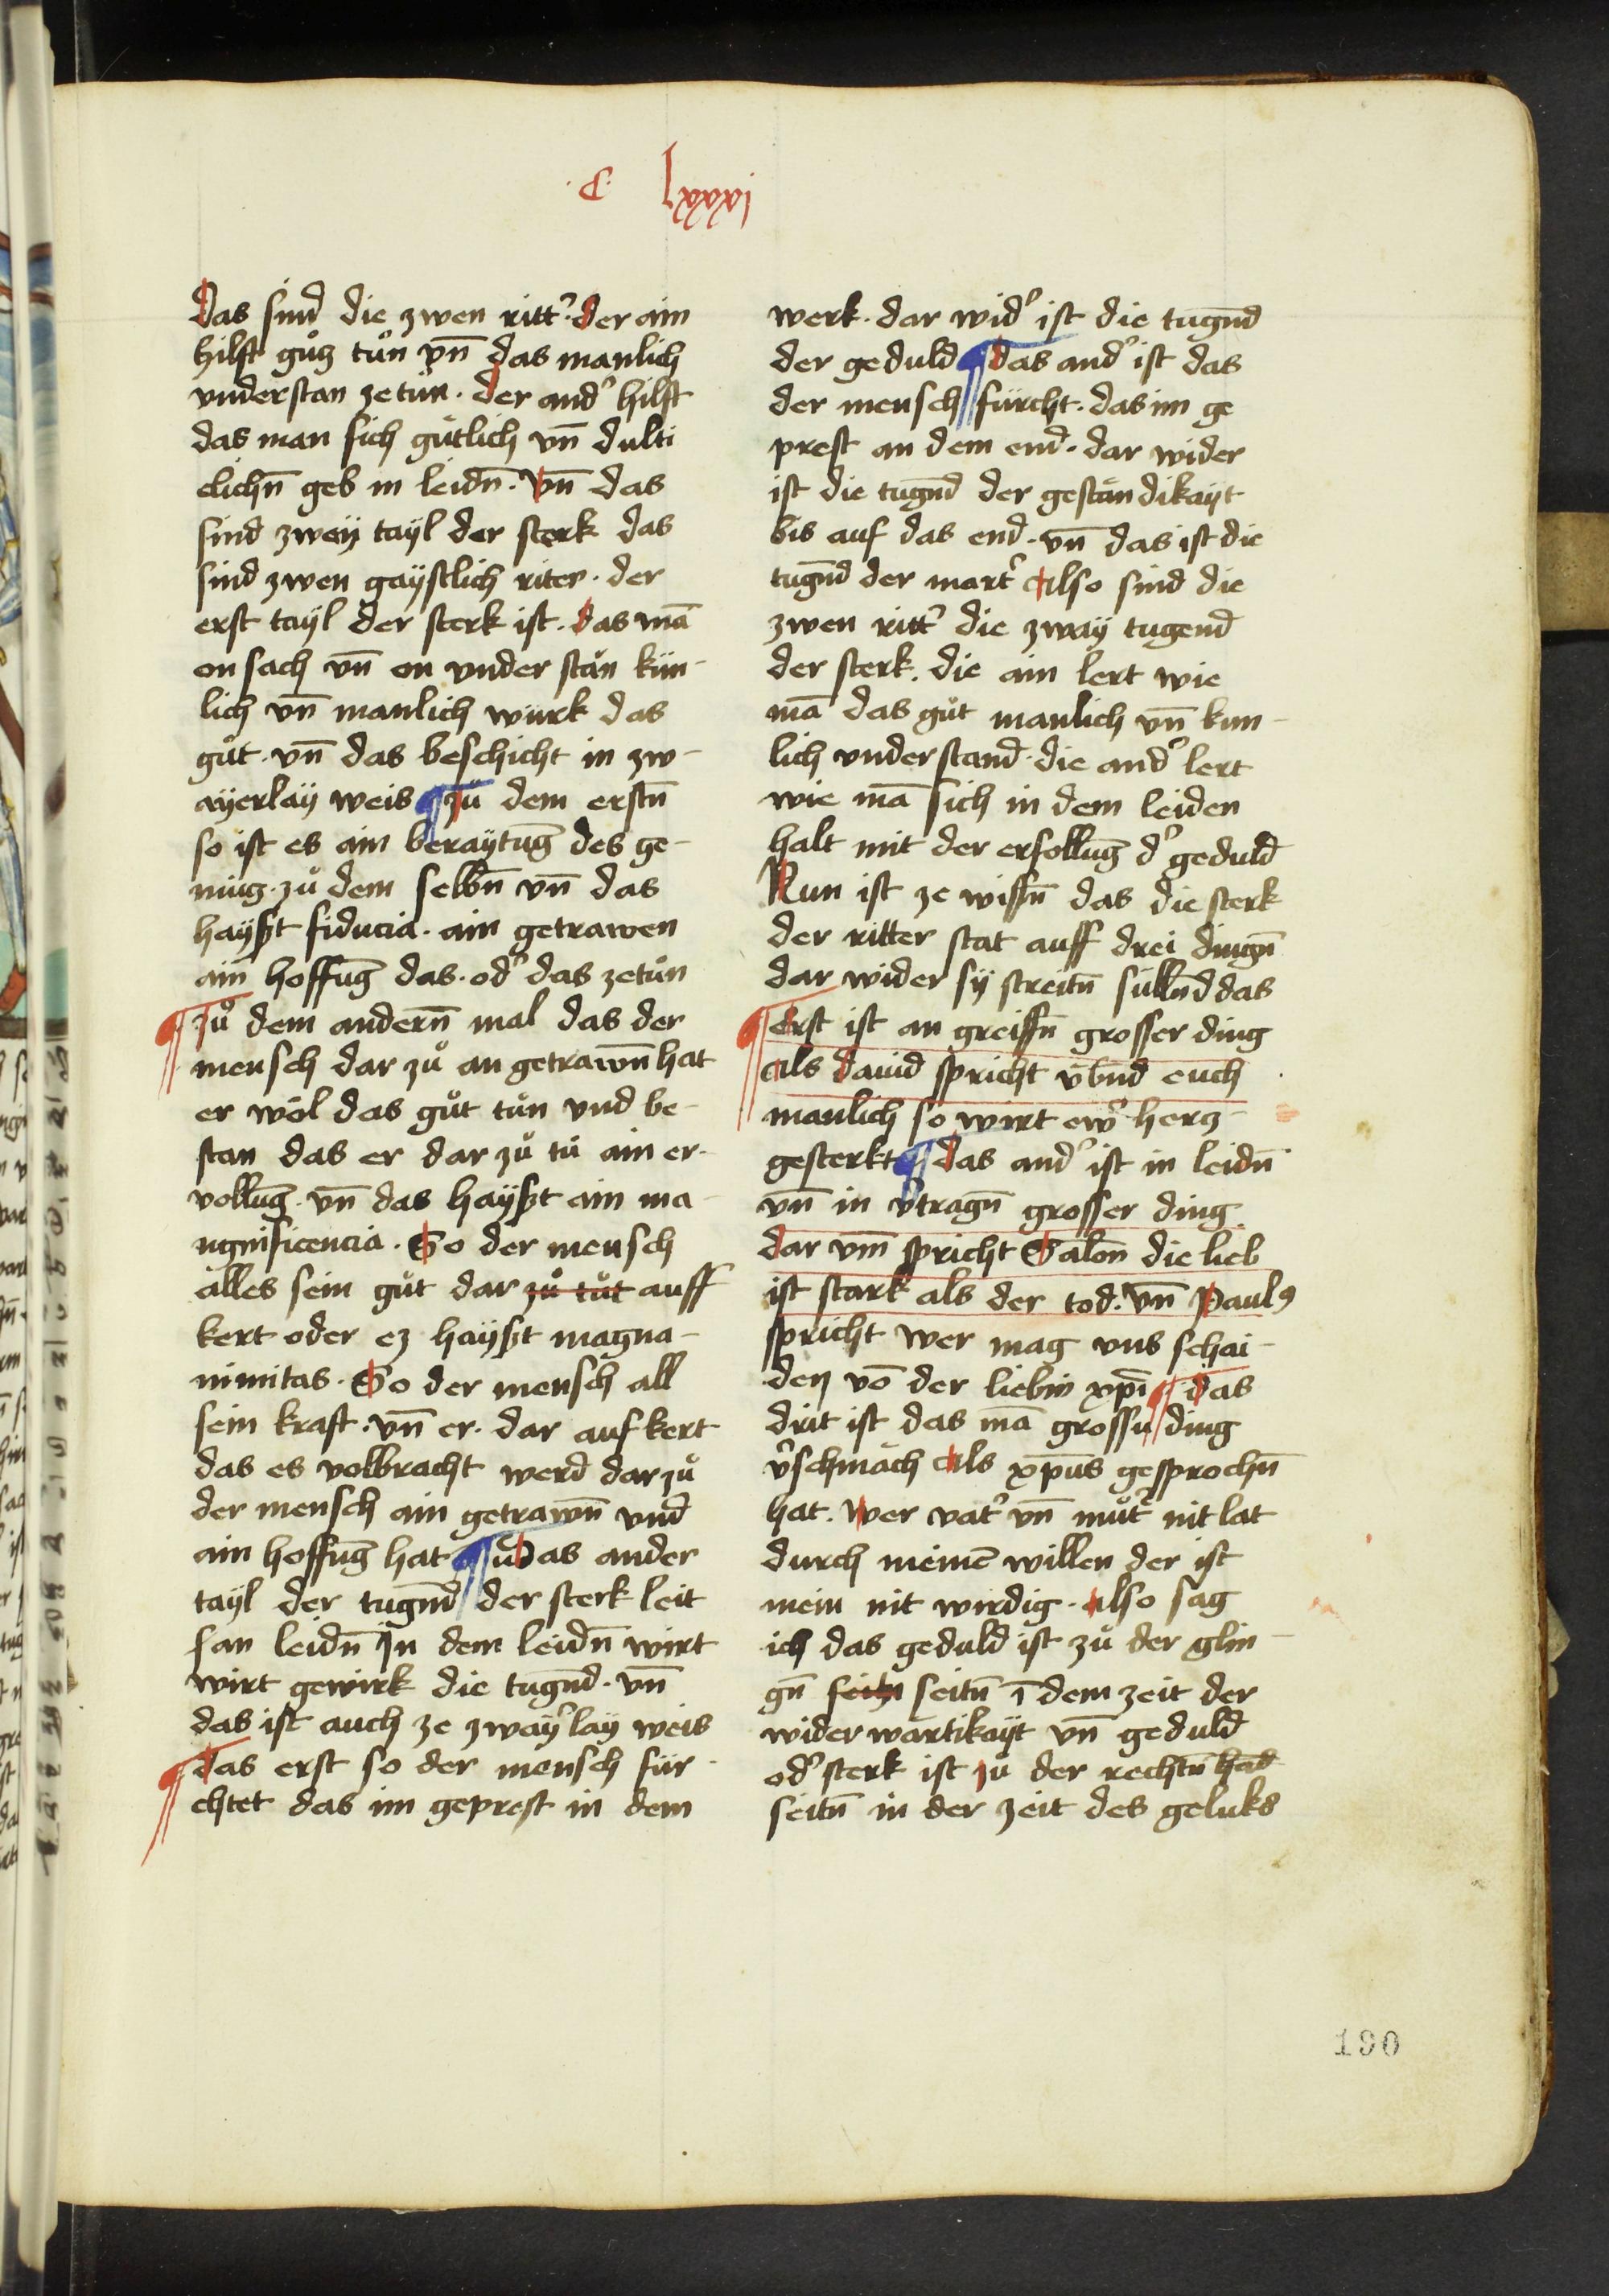 ·C· lxxxvj
Das sind die zwen ritt᷑· der ain
hilft gůcz tůn vn̄ das manlich
vnderstan ze tůn· der and᷑ hilft
das man sich gůtlich vn̄ dulti
clichn̄ geb in leidn̄· Vn̄ das
sind zweÿ taÿl der sterk das
sind zwen gaÿstlich riter· der
erst taÿl der sterk ist· Das mā
on sach vn̄ on vnder stån kün-
lich vn̄ manlich würk das
gůt· vn̄ das beschicht in zw-
aÿerlaÿ weis ¶ zů dem erstn̄
so ist es ain beraÿtūg des ge-
müg· zů dem selbn̄ vn̄ das
haÿßt fiducia· ain getrawen
ain hoffūg das· od᷑ das ze tůn
¶ zů dem andern̄ mal das der
mensch dar zů an getrawn̄ hat
er wöl das gůt tůn vnd be-
stan das er dar zů tů ain er-
vollūg· vn̄ das haÿßt ain ma-
ngnificencia· So der mensch
alles sein gůt dar zů tůt auff
kert oder ez haÿßt magna-
nimitas· So der mensch all
sein kraft· vn̄ er· dar auf kert
das es volbracht werd dar zů
der mensch ain getrawn̄ vnd
ain hoffūg hat ¶ Das ander
taÿl der tugn̄d der sterk leit
san leidn̄ Jn dem leidn̄ wirt
wirt gewirk die tugn̄d· vn̄
das ist auch ze zwaÿ᷑laÿ weis
¶ das erst so der mensch für-
chtet das im geprest in dem
werk· dar wid᷑ ist die tugn̄d
der geduld ¶ das and᷑ ist das
der mensch fürcht· das im ge
prest an dem end· dar wider
ist die tugn̄d der geståndikaÿt
bis auf das end· vn̄ das ist die
tugn̄d der mart᷑ Also sind die
zwen ritt᷑ die zwaÿ tugend
der sterk· die ain lert wie
mā das gůt manlich vn̄ kun-
lich vnderstand· die and᷑ lert
wie mā sich in dem leiden
halt mit der ersollūg d᷑ geduld
Nun ist ze wissn̄ das die sterk
der ritter stat auff drei dingn̄
dar wider sÿ streitn̄ süllnd das
¶ erst ist an greiffn̄ grosser ding
als dauid spricht v̄bnd euch
manlich so wirt ew᷑ hercz
gesterkt ¶ das and᷑ ist in leidn̄
vn̄ in v᷑tragn̄ grosser ding
dar vm̄ spricht Salon̄ die lieb
ist stark als der tod· vn̄ Paulꝰ
spricht wer mag vns schai-
den vō der liebin xp̄i ¶ das
drit ist das mā grossu ding
v᷑schmäch als xp̄us gesprochn̄
hat· Wer vat᷑ vn̄ můt᷑ nit lat
durch meinē willen der ist
mein nit wirdig· Also sag
ich das geduld ist zů der glin-
gn̄ seitn seitn̄ ī dem zeit der
wider wärtikaÿt vn̄ geduld
od᷑ sterk ist zů der rechtn̄ had
seitn̄ in der zeit des geluks
190